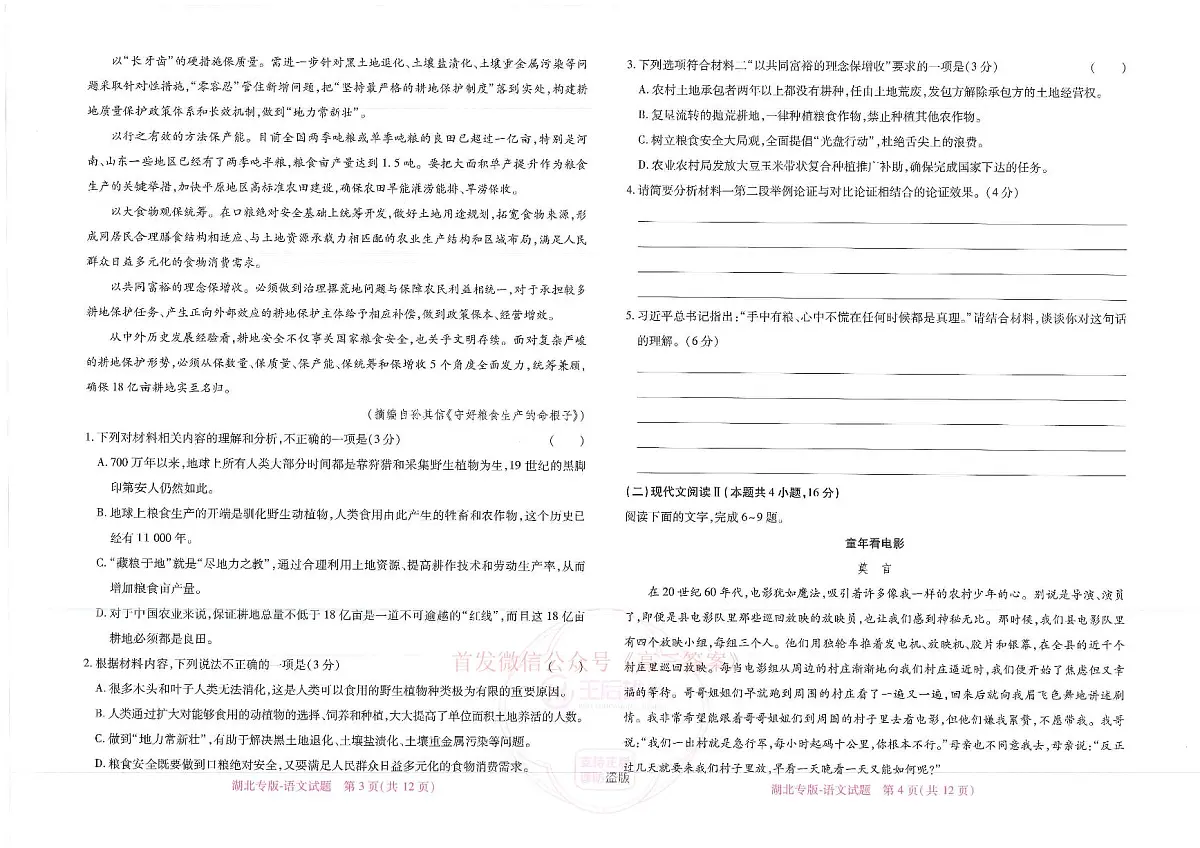 以“长牙齿”的硬措施保质量。需进一步针对黑土地退化、土壤盐渍化、土壤重金属污染等问
题采取针对性措施,“零容忍”管住新增问题,把“坚持最严格的耕地保护制度”落到实处,构建耕
地质量保护政策体系和长效机制,做到“地力常新壮”。
以行之有效的方法保产能。目前全国两季吨粮或单季吨粮的良田已超过一亿亩,特别是河
南、山东一些地区已经有了两季吨半粮,粮食亩产量达到1.5吨。要把大面积单产提升作为粮食
生产的关键举措,加快平原地区高标准农田建设,确保农田旱能灌涝能排、旱涝保收。
以大食物观保统筹。在口粮绝对安全基础上统筹开发,做好土地用途规划,拓宽食物来源,形
成同居民合理膳食结构相适应、与土地资源承载力相匹配的农业生产结构和区域布局,满足人民
群众日益多元化的食物消费需求。
以共同富裕的理念保增收。必须做到治理撂荒地问题与保障农民利益相统一,对于承担较多
耕地保护任务、产生正向外部效应的耕地保护主体给予相应补偿,做到政策保本、经营增效。
从中外历史发展经验看,耕地安全不仅事关国家粮食安全,也关乎文明存续。面对复杂严峻
的耕地保护形势,必须从保数量、保质量、保产能、保统筹和保增收5个角度全面发力,统筹兼顾,
确保18亿亩耕地实至名归。
(摘编自孙其信《守好粮食生产的命根子》)
1.下列对材料相关内容的理解和分析,不正确的一项是(3分) ( )
A.700万年以来,地球上所有人类大部分时间都是靠狩猎和采集野生植物为生,19世纪的黑脚
印第安人仍然如此。
B.地球上粮食生产的开端是驯化野生动植物,人类食用由此产生的牲畜和农作物,这个历史已
经有11 000年。
C.“藏粮于地”就是“尽地力之教”,通过合理利用土地资源、提高耕作技术和劳动生产率,从而
增加粮食亩产量。
D.对于中国农业来说,保证耕地总量不低于18亿亩是一道不可逾越的“红线”,而且这18亿亩
耕地必须都是良田。
2.根据材料内容,下列说法不正确的一项是(3分) ( )
A.很多木头和叶子人类无法消化,这是人类可以食用的野生植物种类极为有限的重要原因。
B.人类通过扩大对能够食用的动植物的选择、饲养和种植,大大提高了单位面积土地养活的人数。
C.做到“地力常新壮”,有助于解决黑土地退化、土壤盐渍化、土壤重金属污染等问题。
D.粮食安全既要做到口粮绝对安全,又要满足人民群众日益多元化的食物消费需求。
湖北专版-语文试题 第3页(共12页)
3.下列选项符合材料二“以共同富裕的理念保增收”要求的一项是(3分) ( )
A.农村土地承包者两年以上都没有耕种,任由土地荒废,发包方解除承包方的土地经营权。
B.复垦流转的抛荒耕地,一律种植粮食作物,禁止种植其他农作物。
C.树立粮食安全大局观,全面提倡“光盘行动”,杜绝舌尖上的浪费。
D.农业农村局发放大豆玉米带状复合种植推广补助,确保完成国家下达的任务。
4.请简要分析材料一第二段举例论证与对比论证相结合的论证效果。(4分)
5.习近平总书记指出:“手中有粮、心中不慌在任何时候都是真理。”请结合材料,谈谈你对这句话
的理解。(6分)
(二)现代文阅读Ⅱ(本题共4小题,16分)
阅读下面的文字,完成6~9题。
童年看电影
莫言
在20世纪60年代,电影犹如魔法,吸引着许多像我一样的农村少年的心。别说是导演、演员
了,即便是县电影队里那些巡回放映的放映员,也让我们感到神秘无比。那时候,我们县电影队里
有四个放映小组,每组三个人。他们用独轮车推着发电机、放映机、胶片和银幕,在全县的近千个
村庄里巡回放映。每当电影组从周边的村庄渐渐地向我们村庄逼近时,我们便开始了焦虑但又幸
福的等待。哥哥姐姐们早就跑到周围的村庄看了一遍又一遍,回来后就向我眉飞色舞地讲述剧
情。我非常希望能跟着哥哥姐姐们到周围的村子里去看电影,但他们嫌我累赘,不愿带我。我哥
说:“我们一出村就是急行军,每小时起码十公里,你根本不行。”母亲也不同意我去,母亲说:“反正
过几天就要来我们村子里放,早看一天晚看一天又能如何呢?”
湖北专版-语文试题 第4页(共12页)
首发微信公众号《高三答案》
盗版